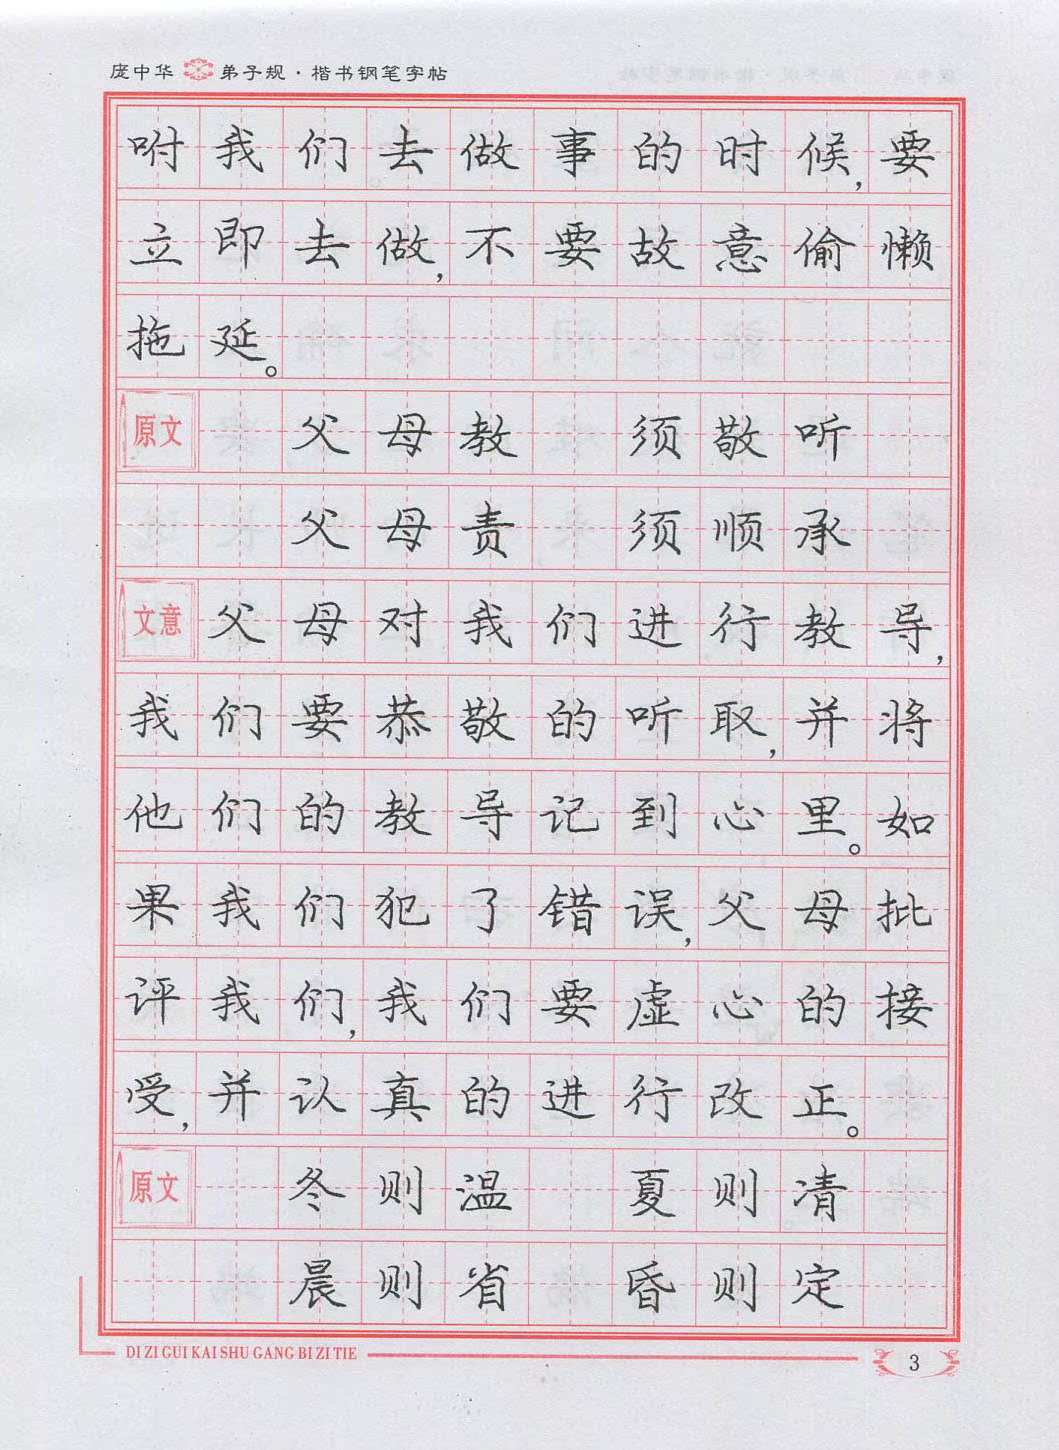 庞中华 弟子规·楷书钢笔字帖
咐我们去做事的时候,要
立即去做,不要故意偷懒
拖延。
原文 父母教 须敬听
父母责 须顺承
文意 父母对我们进行教导,
我们要恭敬的听取,并将
他们的教导记到心里。如
果我们犯了错误,父母批
评我们,我们要虚心的接
受,并认真的进行改正。
原文 冬则温 夏则凊
晨则省 昏则定
DI ZI GUI KAI SHU GANG BI ZI TIE
3